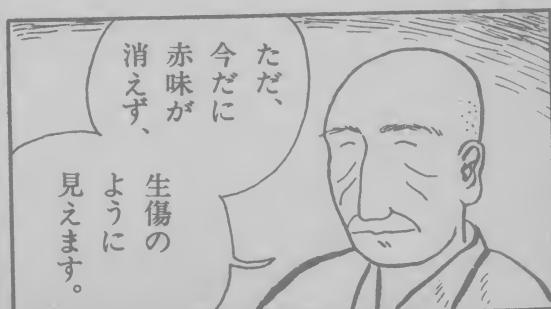 ただ、
今だに
赤味が
消えず、
生傷の
ように
見えます。